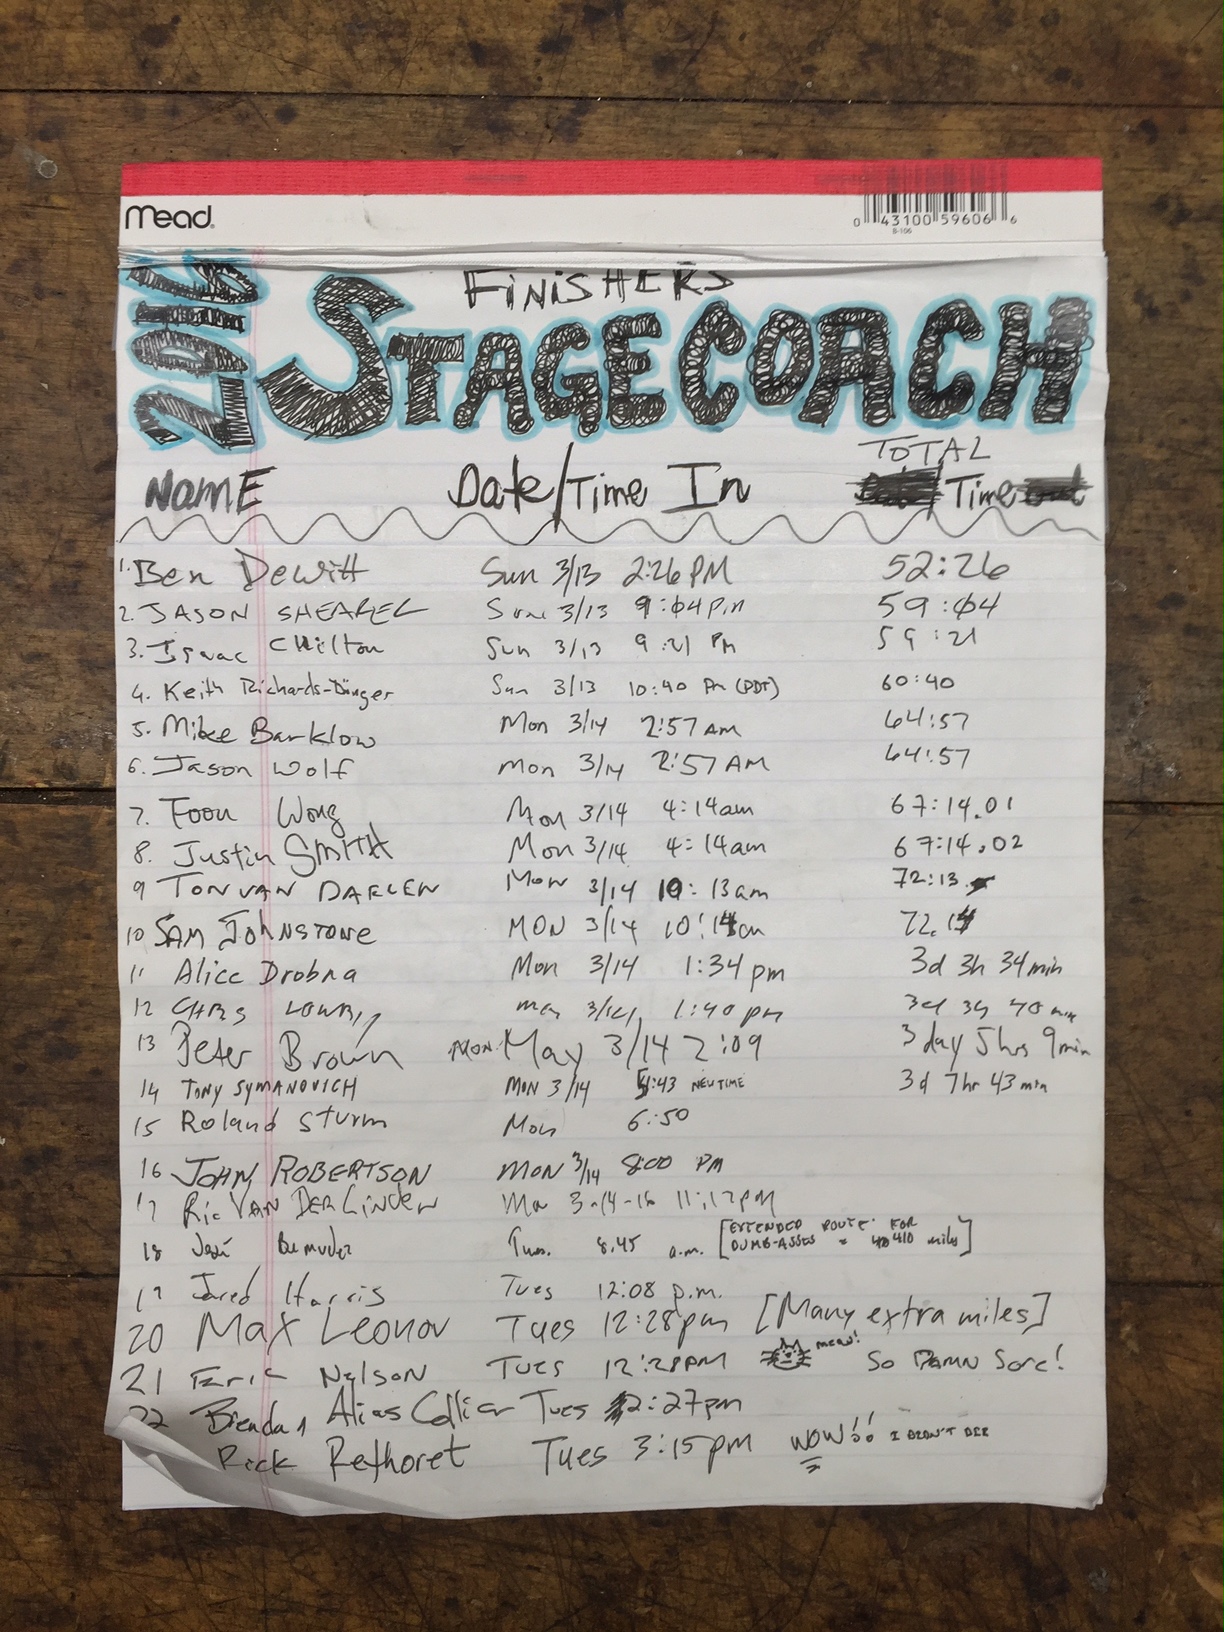 Mead
0 43100 59606 6
B-106
2016
FINISHERS
STAGECOACH
NAME Date/Time In TOTAL Time
1. Ben Dewitt Sun 3/13 2:26 PM 52:26
2. JASON SHEARER Sun 3/13 9:04 pm 59:04
3. Isaac Chilton Sun 3/13 9:21 PM 59:21
4. Keith Richards-Dinger Sun 3/13 10:40 Pm (PDT) 60:40
5. Mike Barklow Mon 3/14 2:57 AM 64:57
6. Jason Wolf Mon 3/14 2:57 AM 64:57
7. Foon Wong Mon 3/14 4:14am 67:14.01
8. Justin SMITH Mon 3/14 4:14am 67:14.02
9 TON VAN DAELEN Mon 3/14 10:13am 72:13
10 SAM JOHNSTONE MON 3/14 10:14am 72.14
11 Alice Drobna Mon 3/14 1:34 pm 3d 3h 34 min
12 CHRIS LOWRY mon 3/14 1:40 pm 3d 3h 40 min
13 Peter Brown MON May 3/14 2:09 3 day 5 hrs 9 min
14 TONY SYMANOVICH MON 3/14 5:43 NEW TIME 3d 7hr 43 min
15 Roland Sturm Mon 6:50
16 JOHN ROBERTSON MON 3/14 8:00 PM
17 Ric VAN DER LINDEN Mon 3-14-16 11:17PM
18 José Bermudez Tues. 8.45 a.m. [EXTENDED ROUTE FOR
DUMB-ASSES = 410 miles]
19 Jared Harris Tues 12:08 p.m.
20 Max Leonov Tues 12:28pm [Many extra miles]
21 Eric Nelson Tues 12:28PM meow! SO DAMN Sore!
22 Brendan Alias Collier Tues 2:27pm
Rick Rethoret Tues 3:15pm WOW!! I DIDN'T DIE